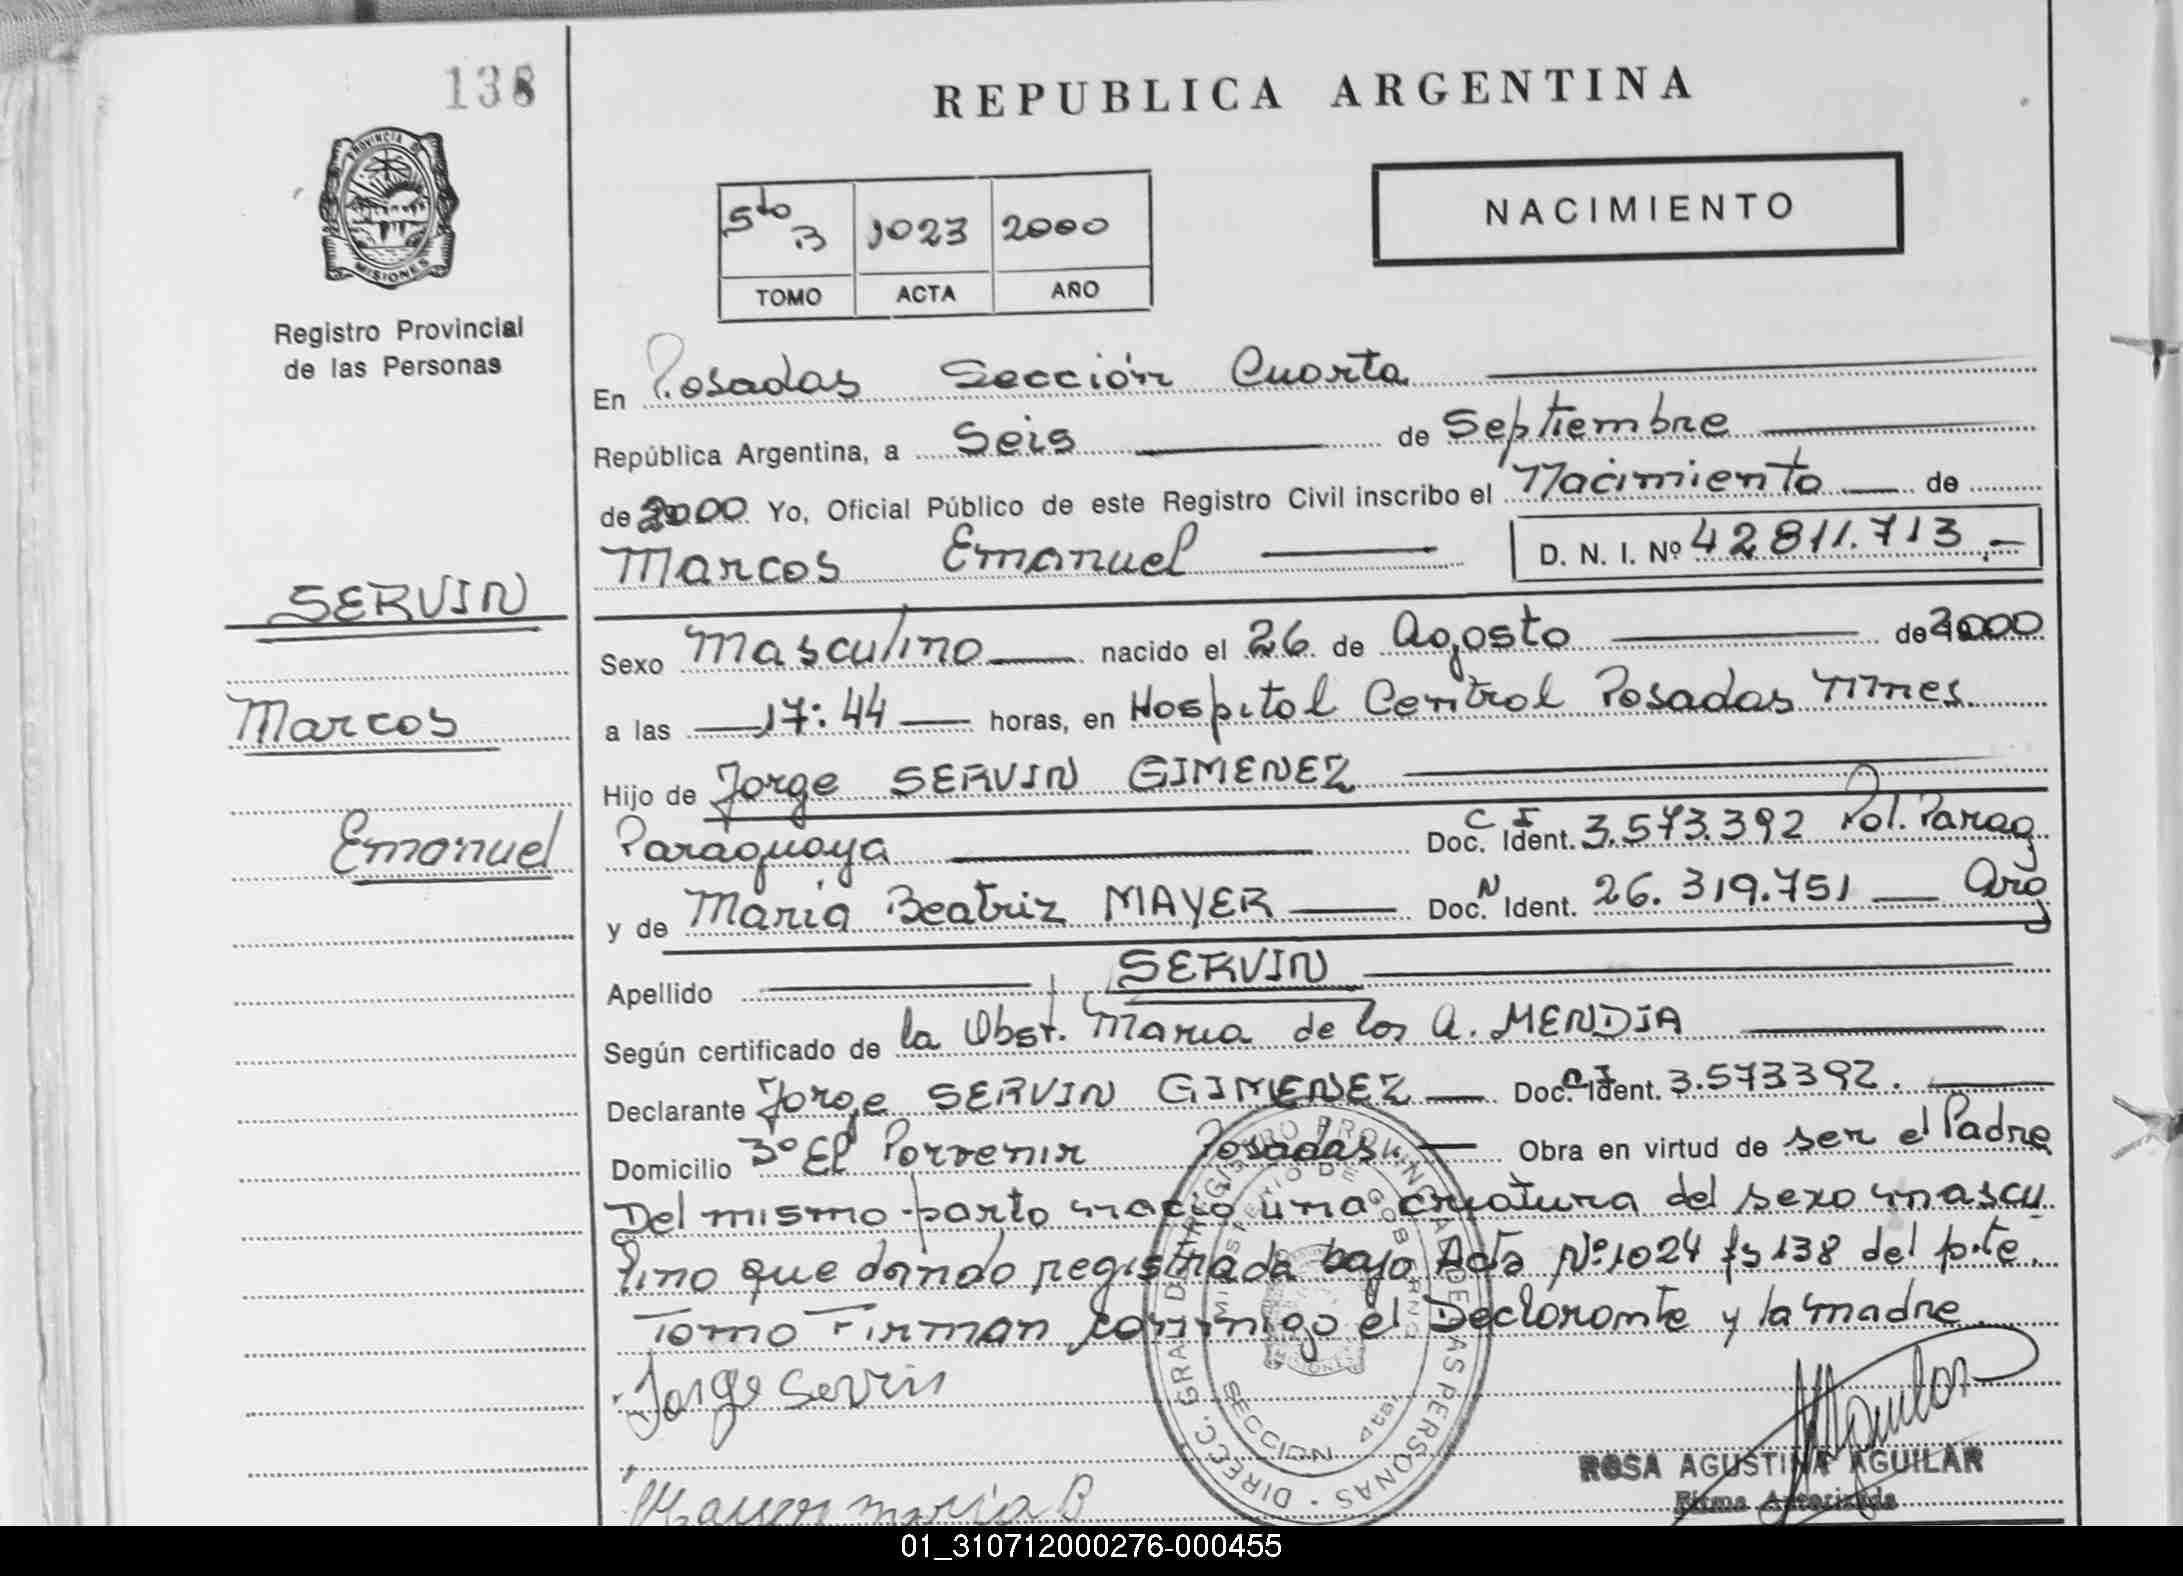 138
REPUBLICA ARGENTINA
PROVINCIA D MISIONES
Registro Provincial
de las Personas
5to B 1023 2000
TOMO ACTA AÑO
NACIMIENTO
En Posadas Sección Cuarta
República Argentina, a Seis de Septiembre
de 2000 Yo, Oficial Público de este Registro Civil inscribo el Nacimiento de
Marcos Emanuel D. N. I. Nº 42811.713.-
SERVIN
Marcos
Emanuel
Sexo Masculino nacido el 26 de Agosto de 2000
a las 17:44 horas, en Hospital Central Posadas Mnes.
Hijo de Jorge SERVIN GIMENEZ
Paraguaya Doc. Ident. C I 3.573.392 Pol. Parag
y de Maria Beatriz MAYER Doc. N Ident. 26.319.751 Arg
Apellido SERVIN
Según certificado de la Obst. Maria de los A. MENDIA
Declarante Jorge SERVIN GIMENEZ Doc. C I Ident. 3.573392.
Domicilio 3º El Porvenir Posadas Obra en virtud de ser el Padre
Del mismo parto nacio una criatura del sexo mascu
lino que dando registrada bajo Acta Nº 1024 fs 138 del pte.
Tomo Firman conmigo el Declarante y la madre
Jorge Servin
Mayer maria B
DIRECC. GRAL DEL REGISTRO PROVINCIAL DE LAS PERSONAS
MINISTERIO DE GOBIERNO
SECCION 4ta.
ROSA AGUSTINA AGUILAR
Firma Autorizada
01_310712000276-000455